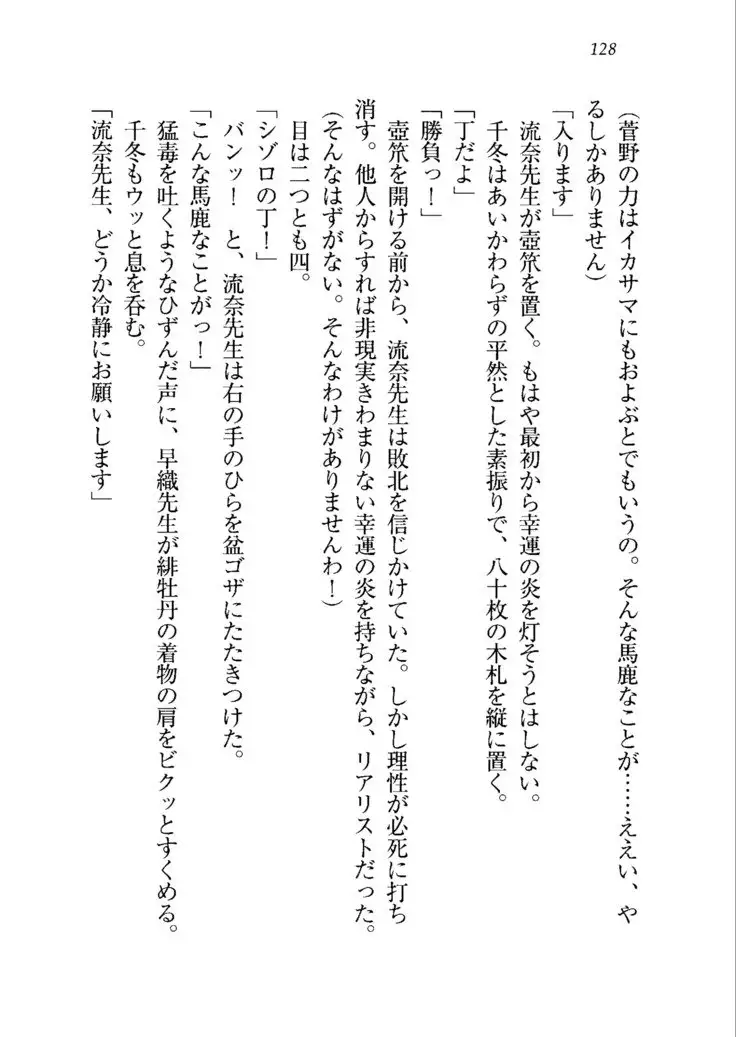 128
(菅野の力はイカサマにもおよぶとでもいうの。そんな馬鹿なことが……ええい、や
るしかありません)
「入ります」
流奈先生が壺笊を置く。もはや最初から幸運の炎を灯そうとはしない。
千冬はあいかわらずの平然とした素振りで、八十枚の木札を縦に置く。
「丁だよ」
「勝負っ！」
壺笊を開ける前から、流奈先生は敗北を信じかけていた。しかし理性が必死に打ち
消す。他人からすれば非現実きわまりない幸運の炎を持ちながら、リアリストだった。
(そんなはずがない。そんなわけがありませんわ！)
目は二つとも四。
「シゾロの丁！」
バンッ！　と、流奈先生は右の手のひらを盆ゴザにたたきつけた。
「こんな馬鹿なことがっ！」
猛毒を吐くようなひずんだ声に、早織先生が緋牡丹の着物の肩をビクッとすくめる。
千冬もウッと息を呑む。
「流奈先生、どうか冷静にお願いします」